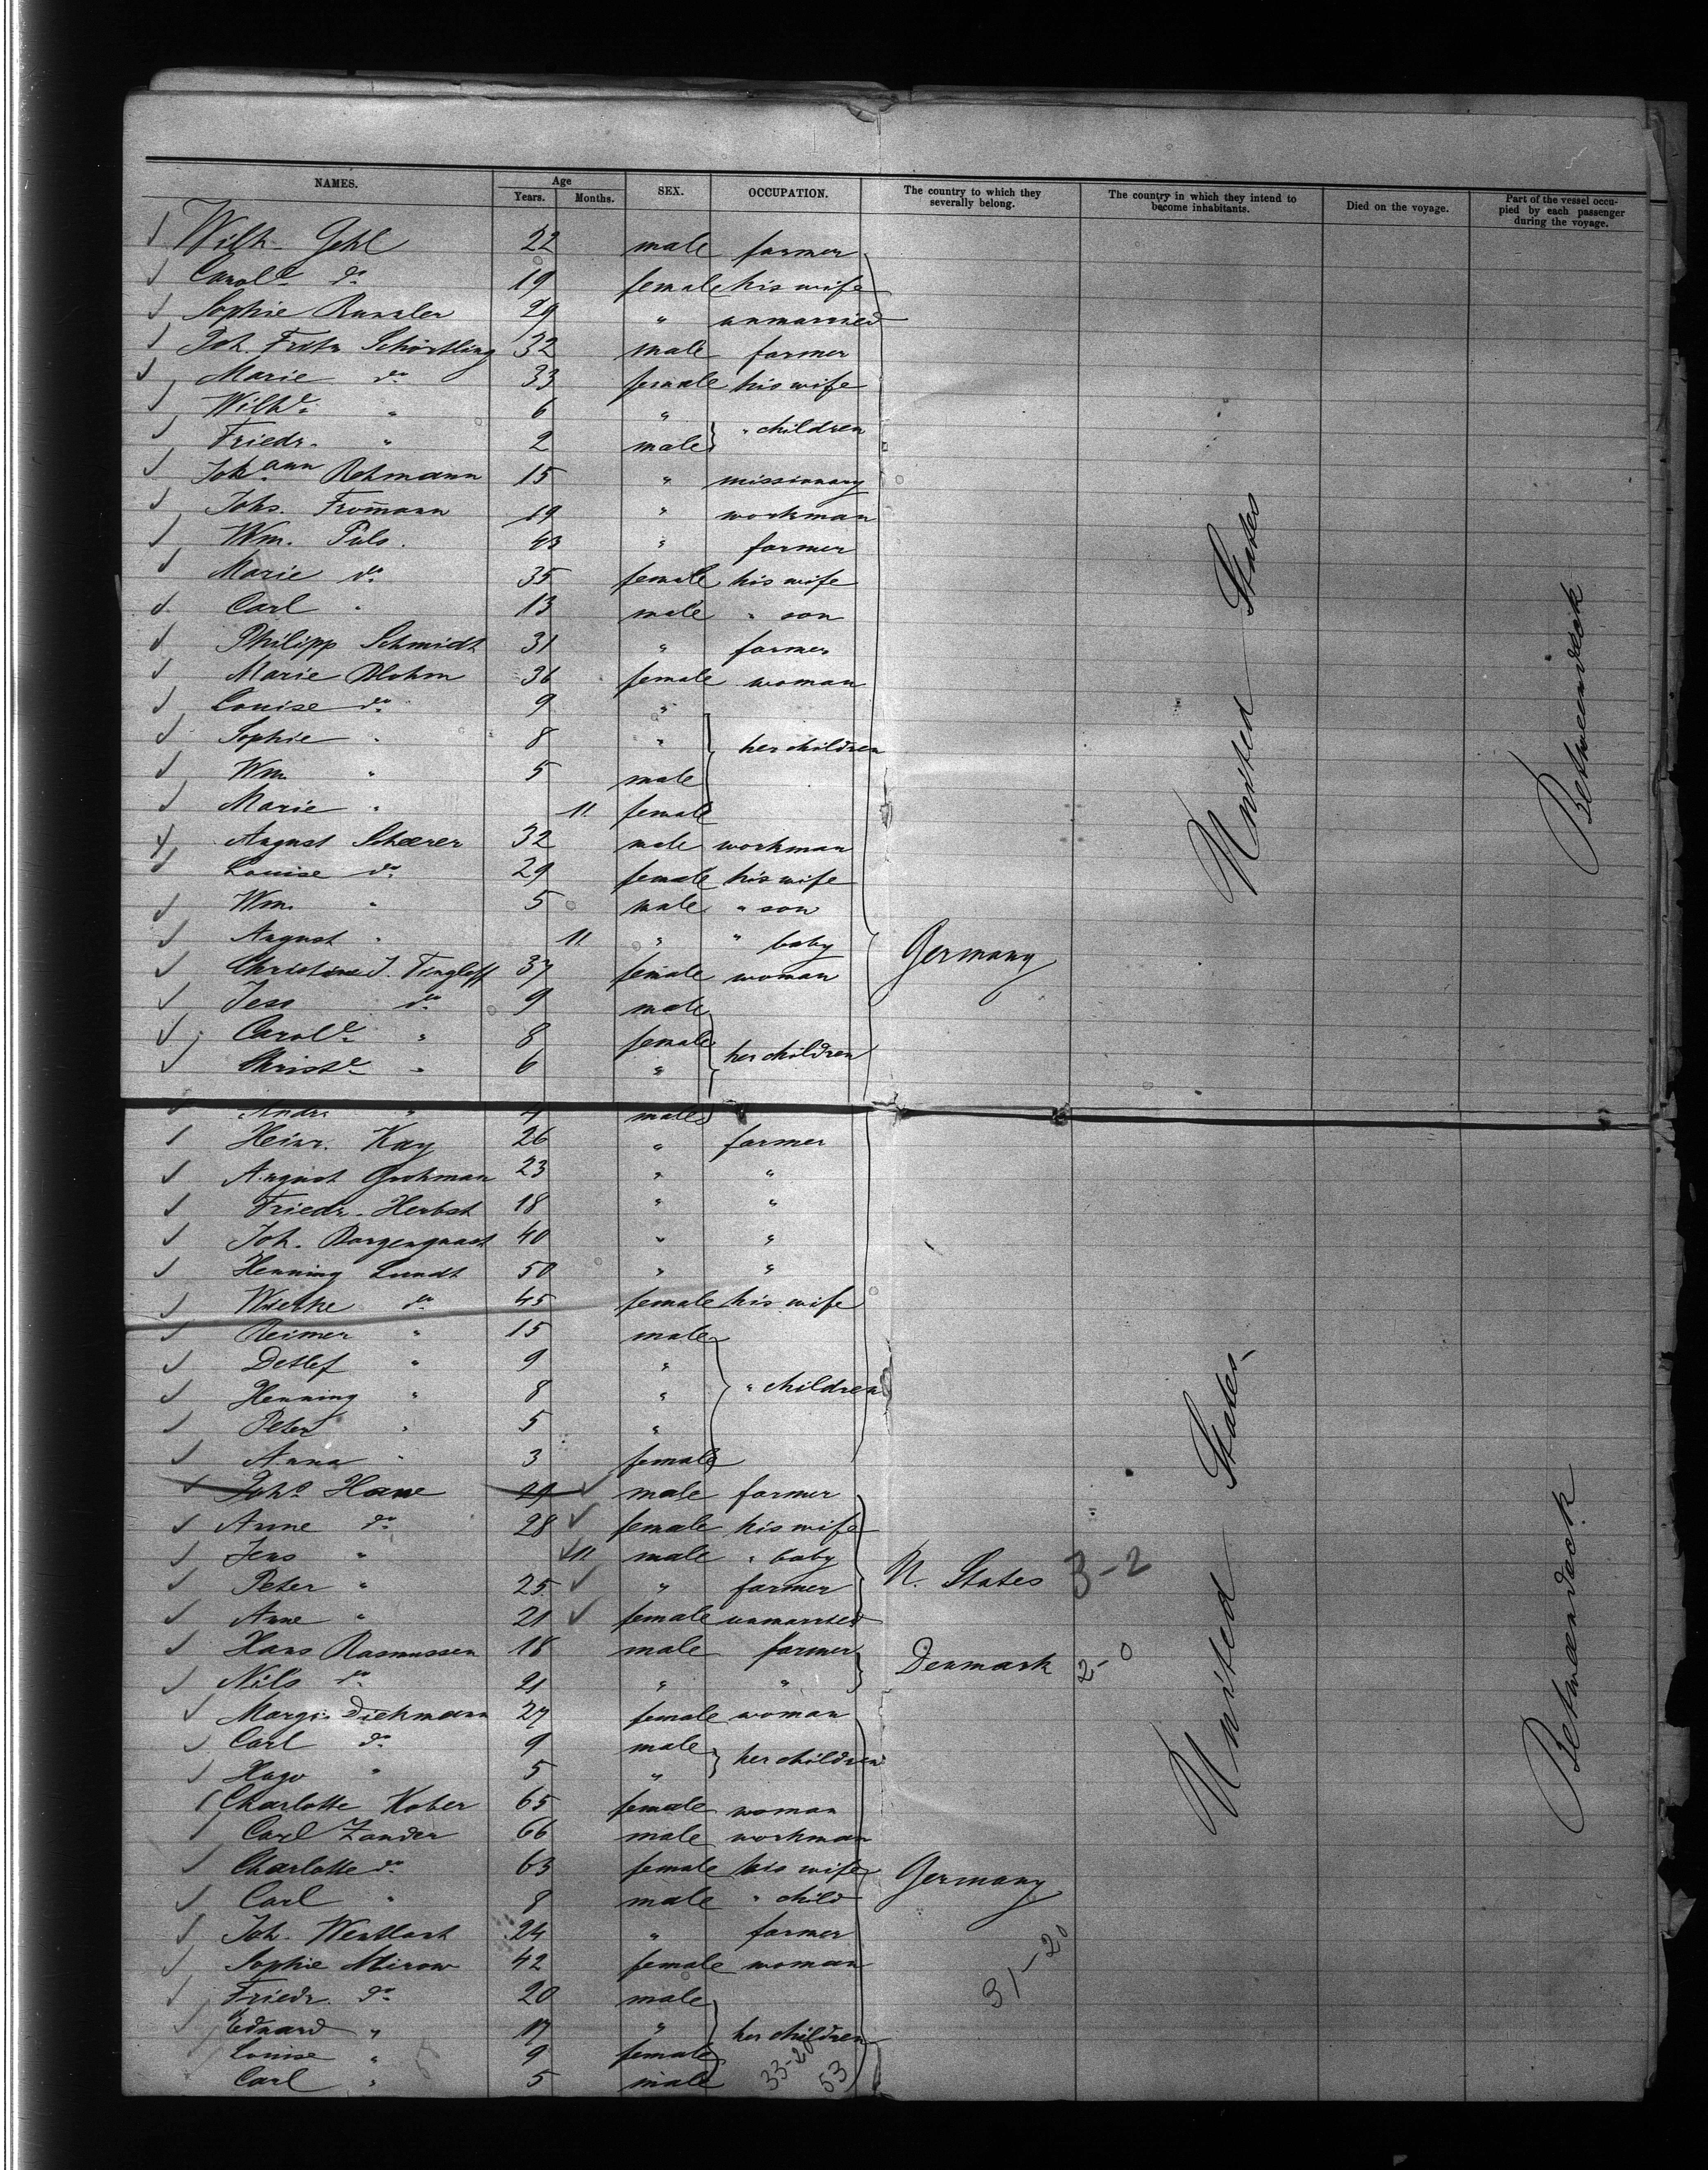 NAMES. Age Years. Months. SEX. OCCUPATION. The country to which they severally belong. The country in which they intend to become inhabitants. Died on the voyage. Part of the vessel occupied by each passenger during the voyage.
Wilh. Gehl 22 male farmer
Carol.e do 19 female his wife
Sophie 29 " unmarried
Joh. Fritz Schörtling 32 male farmer
Marie do 33 female his wife
Wilh.e " 6 "
Friedr. " 2 male " children
Johann Rehmann 15 " missionary
Johs. Fromann 19 " workman
Wm. Puls. 43 " farmer
Marie do 35 female his wife
Carl " 13 male " son
Philipp Schmidt 31 " farmer
Marie Blohm 36 female woman
Louise do 9 "
Sophie " 8 " her children
Wm. " 5 male
Marie " 11 female
August Scheerer 32 male workman
Louise do 29 female his wife
Wm. " 5 male " son
August " 11 " " baby Germany
Christine J. Tingleff 37 female woman
Jess do 9 male
Carol.e " 8 female her children
Christ.e " 6 "
Andr. " 4 male
Heinr. Kay 26 " farmer
August Grohman 23 " "
Friedr. Herbst 18 " "
Joh. 40 " "
Henning Lundt 50 " "
Wiebke do 45 female his wife
Reimer " 15 male
Detlef " 9 "
Henning " 8 " " children
Peter " 5 "
Anna " 3 female
Johs Hane 29 male farmer
Anne do 28 female his wife
Jens " 11 male " baby
Peter " 25 " farmer U. States 3-2
Anne " 21 female unmarried
Hans Rasmussen 18 male farmer Denmark 2-0
Nils do 21 " "
Marg. Diekmann 27 female woman
Carl do 9 male her children
Hugo " 5 "
Charlotte Kober 65 female woman
Carl Zander 66 male workman
Charlotte do 63 female his wife Germany
Carl " 8 male " child
Joh. 24 " farmer
Sophie Mirow 42 female woman 31-20
Friedr. do 20 male
Eduard " 17 " her children
Louise " 9 female
Carl " 5 male 33-20 53
United States
Betweendeck
United States
Betweendeck